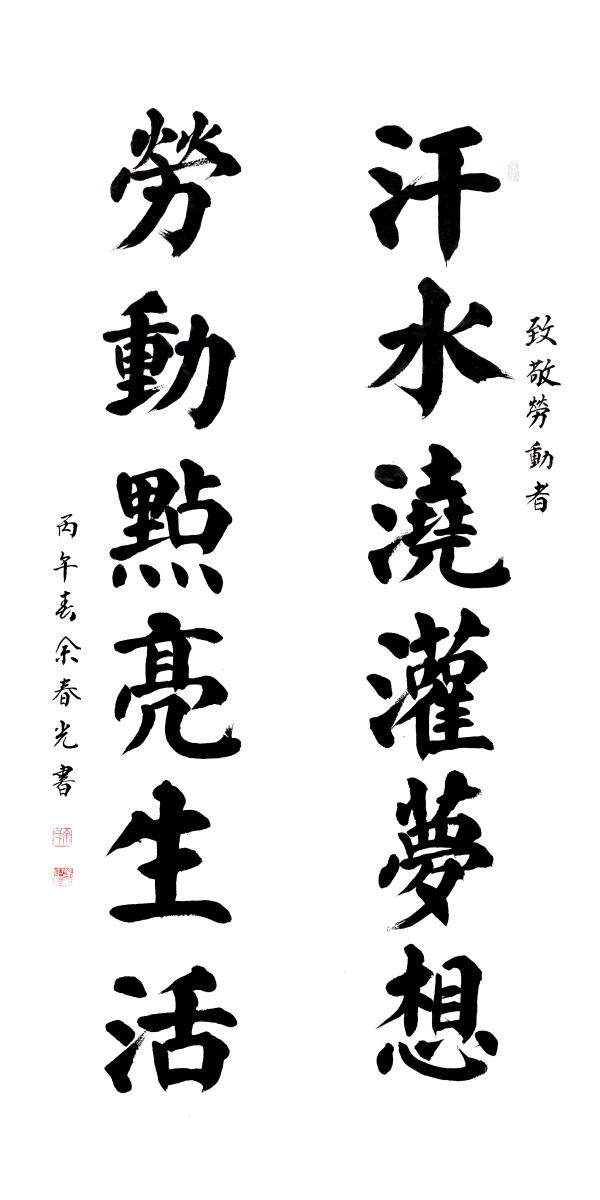 致敬勞動者
汗水澆灌夢想
勞動點亮生活
丙午春余春光書